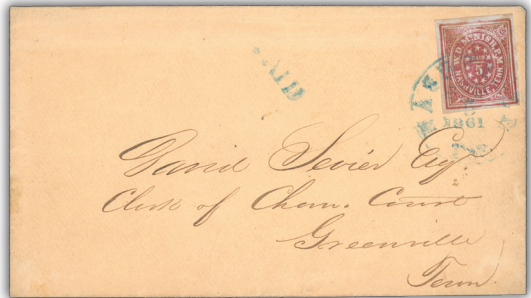 PAID
W.D. McNISH, P.M.
PAID
5
NASHVILLE, TENN.
NASH
1861
David Sevier Esq.
Clerk of Chan. Court
Greenville
Tenn.